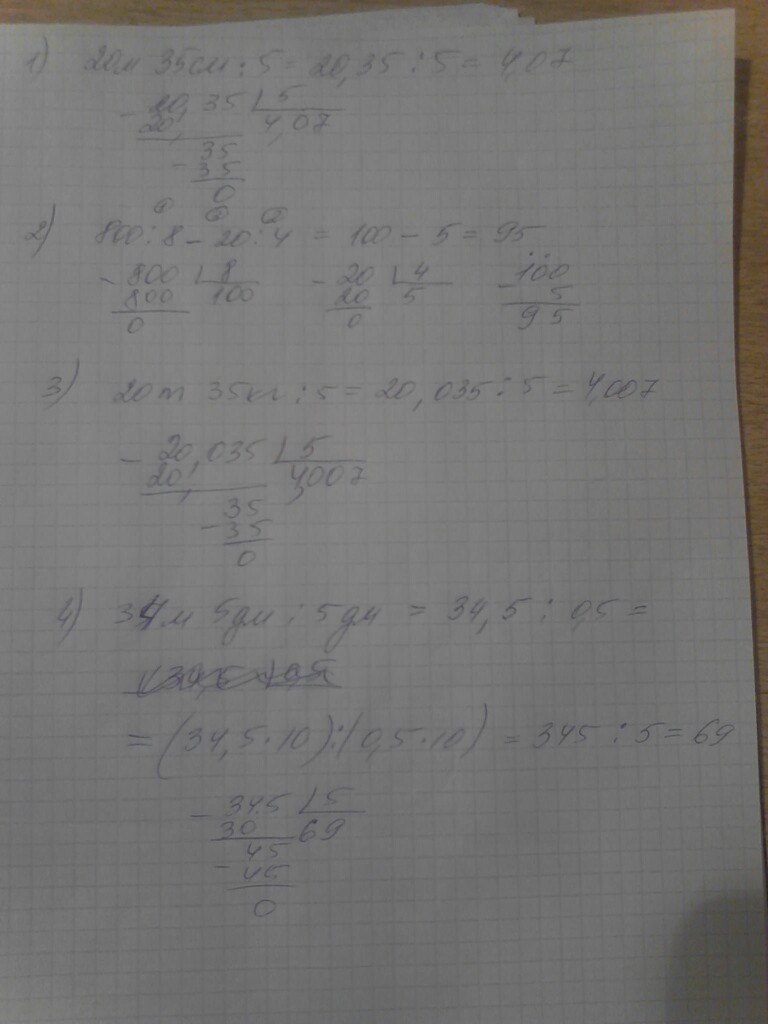 1) 20м 35см : 5 = 20,35 : 5 = 4,07
- 20,35 | 5
20, 4,07
35
- 35
0
① ③ ②
2) 800 : 8 - 20 : 4 = 100 - 5 = 95
- 800 | 8 - 20 | 4 - 100
800 100 20 5 5
0 0 95
3) 20т 35кг : 5 = 20,035 : 5 = 4,007
- 20,035 | 5
20, 4,007
35
- 35
0
4) 34м 5дм : 5дм = 34,5 : 0,5 =
= (34,5·10):(0,5·10) = 345 : 5 = 69
- 345 | 5
30 69
45
- 45
0